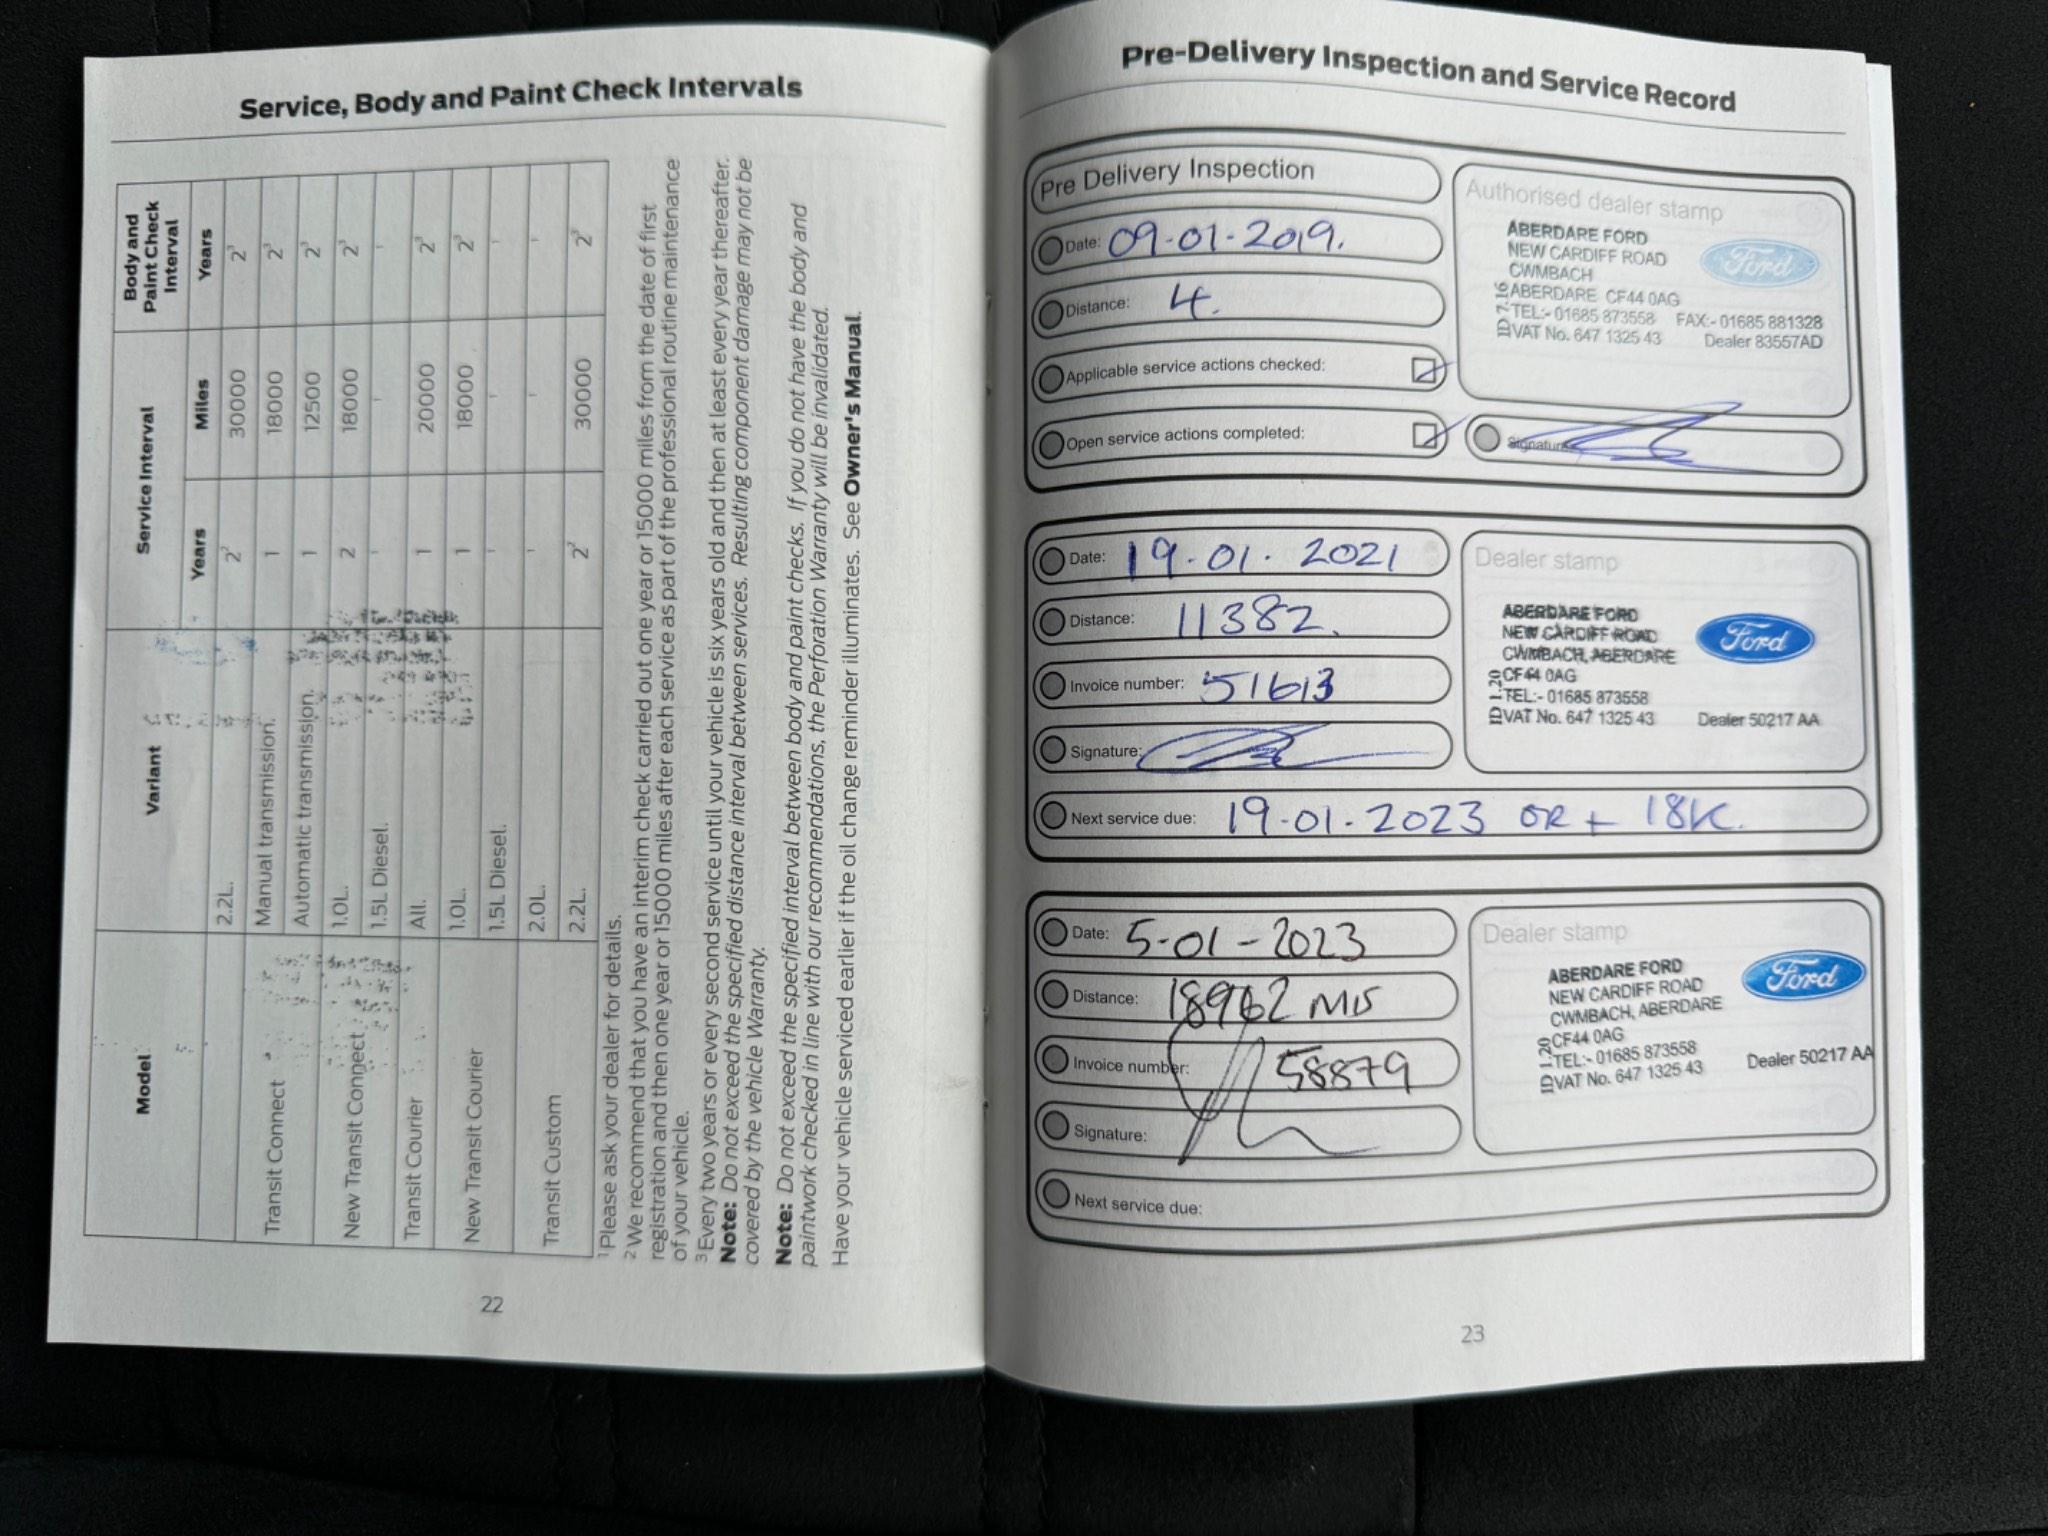 Service, Body and Paint Check Intervals
Model Variant Service Interval Body and Paint Check Interval
Years Miles Years
2.2L. 2² 30000 2³
Transit Connect Manual transmission. 1 18000 2³
Automatic transmission. 1 12500 2³
New Transit Connect 1.0L. 2 18000 2³
1.5L Diesel. ¹ ¹ ¹
Transit Courier All. 1 20000 2³
New Transit Courier 1.0L. 1 18000 2³
1.5L Diesel. ¹ ¹ ¹
Transit Custom 2.0L. ¹ ¹ ¹
2.2L. 2² 30000 2³
¹ Please ask your dealer for details.
² We recommend that you have an interim check carried out one year or 15000 miles from the date of first
registration and then one year or 15000 miles after each service as part of the professional routine maintenance
of your vehicle.
³ Every two years or every second service until your vehicle is six years old and then at least every year thereafter.
Note: Do not exceed the specified distance interval between services. Resulting component damage may not be
covered by the vehicle Warranty.
Note: Do not exceed the specified interval between body and paint checks. If you do not have the body and
paintwork checked in line with our recommendations, the Perforation Warranty will be invalidated.
Have your vehicle serviced earlier if the oil change reminder illuminates. See Owner's Manual.
22
Pre-Delivery Inspection and Service Record
Pre Delivery Inspection
Date: 09-01-2019.
Distance: 4.
Applicable service actions checked:
Open service actions completed:
Authorised dealer stamp
ABERDARE FORD
NEW CARDIFF ROAD
CWMBACH
ABERDARE CF44 0AG
TEL:- 01685 873558 FAX:- 01685 881328
VAT No. 647 1325 43 Dealer 83557AD
ID 7.16
Ford
Signature:
Date: 19.01.2021
Distance: 11382.
Invoice number: 51613
Signature:
Next service due: 19.01.2023 OR + 18K.
Dealer stamp
ABERDARE FORD
NEW CARDIFF ROAD
CWMBACH, ABERDARE
CF44 0AG
TEL:- 01685 873558
VAT No. 647 1325 43 Dealer 50217 AA
ID 1.20
Ford
Date: 5-01-2023
Distance: 18962 MLS
Invoice number: 58879
Signature:
Next service due:
Dealer stamp
ABERDARE FORD
NEW CARDIFF ROAD
CWMBACH, ABERDARE
CF44 0AG
TEL:- 01685 873558
VAT No. 647 1325 43 Dealer 50217 AA
ID 1.20
Ford
23